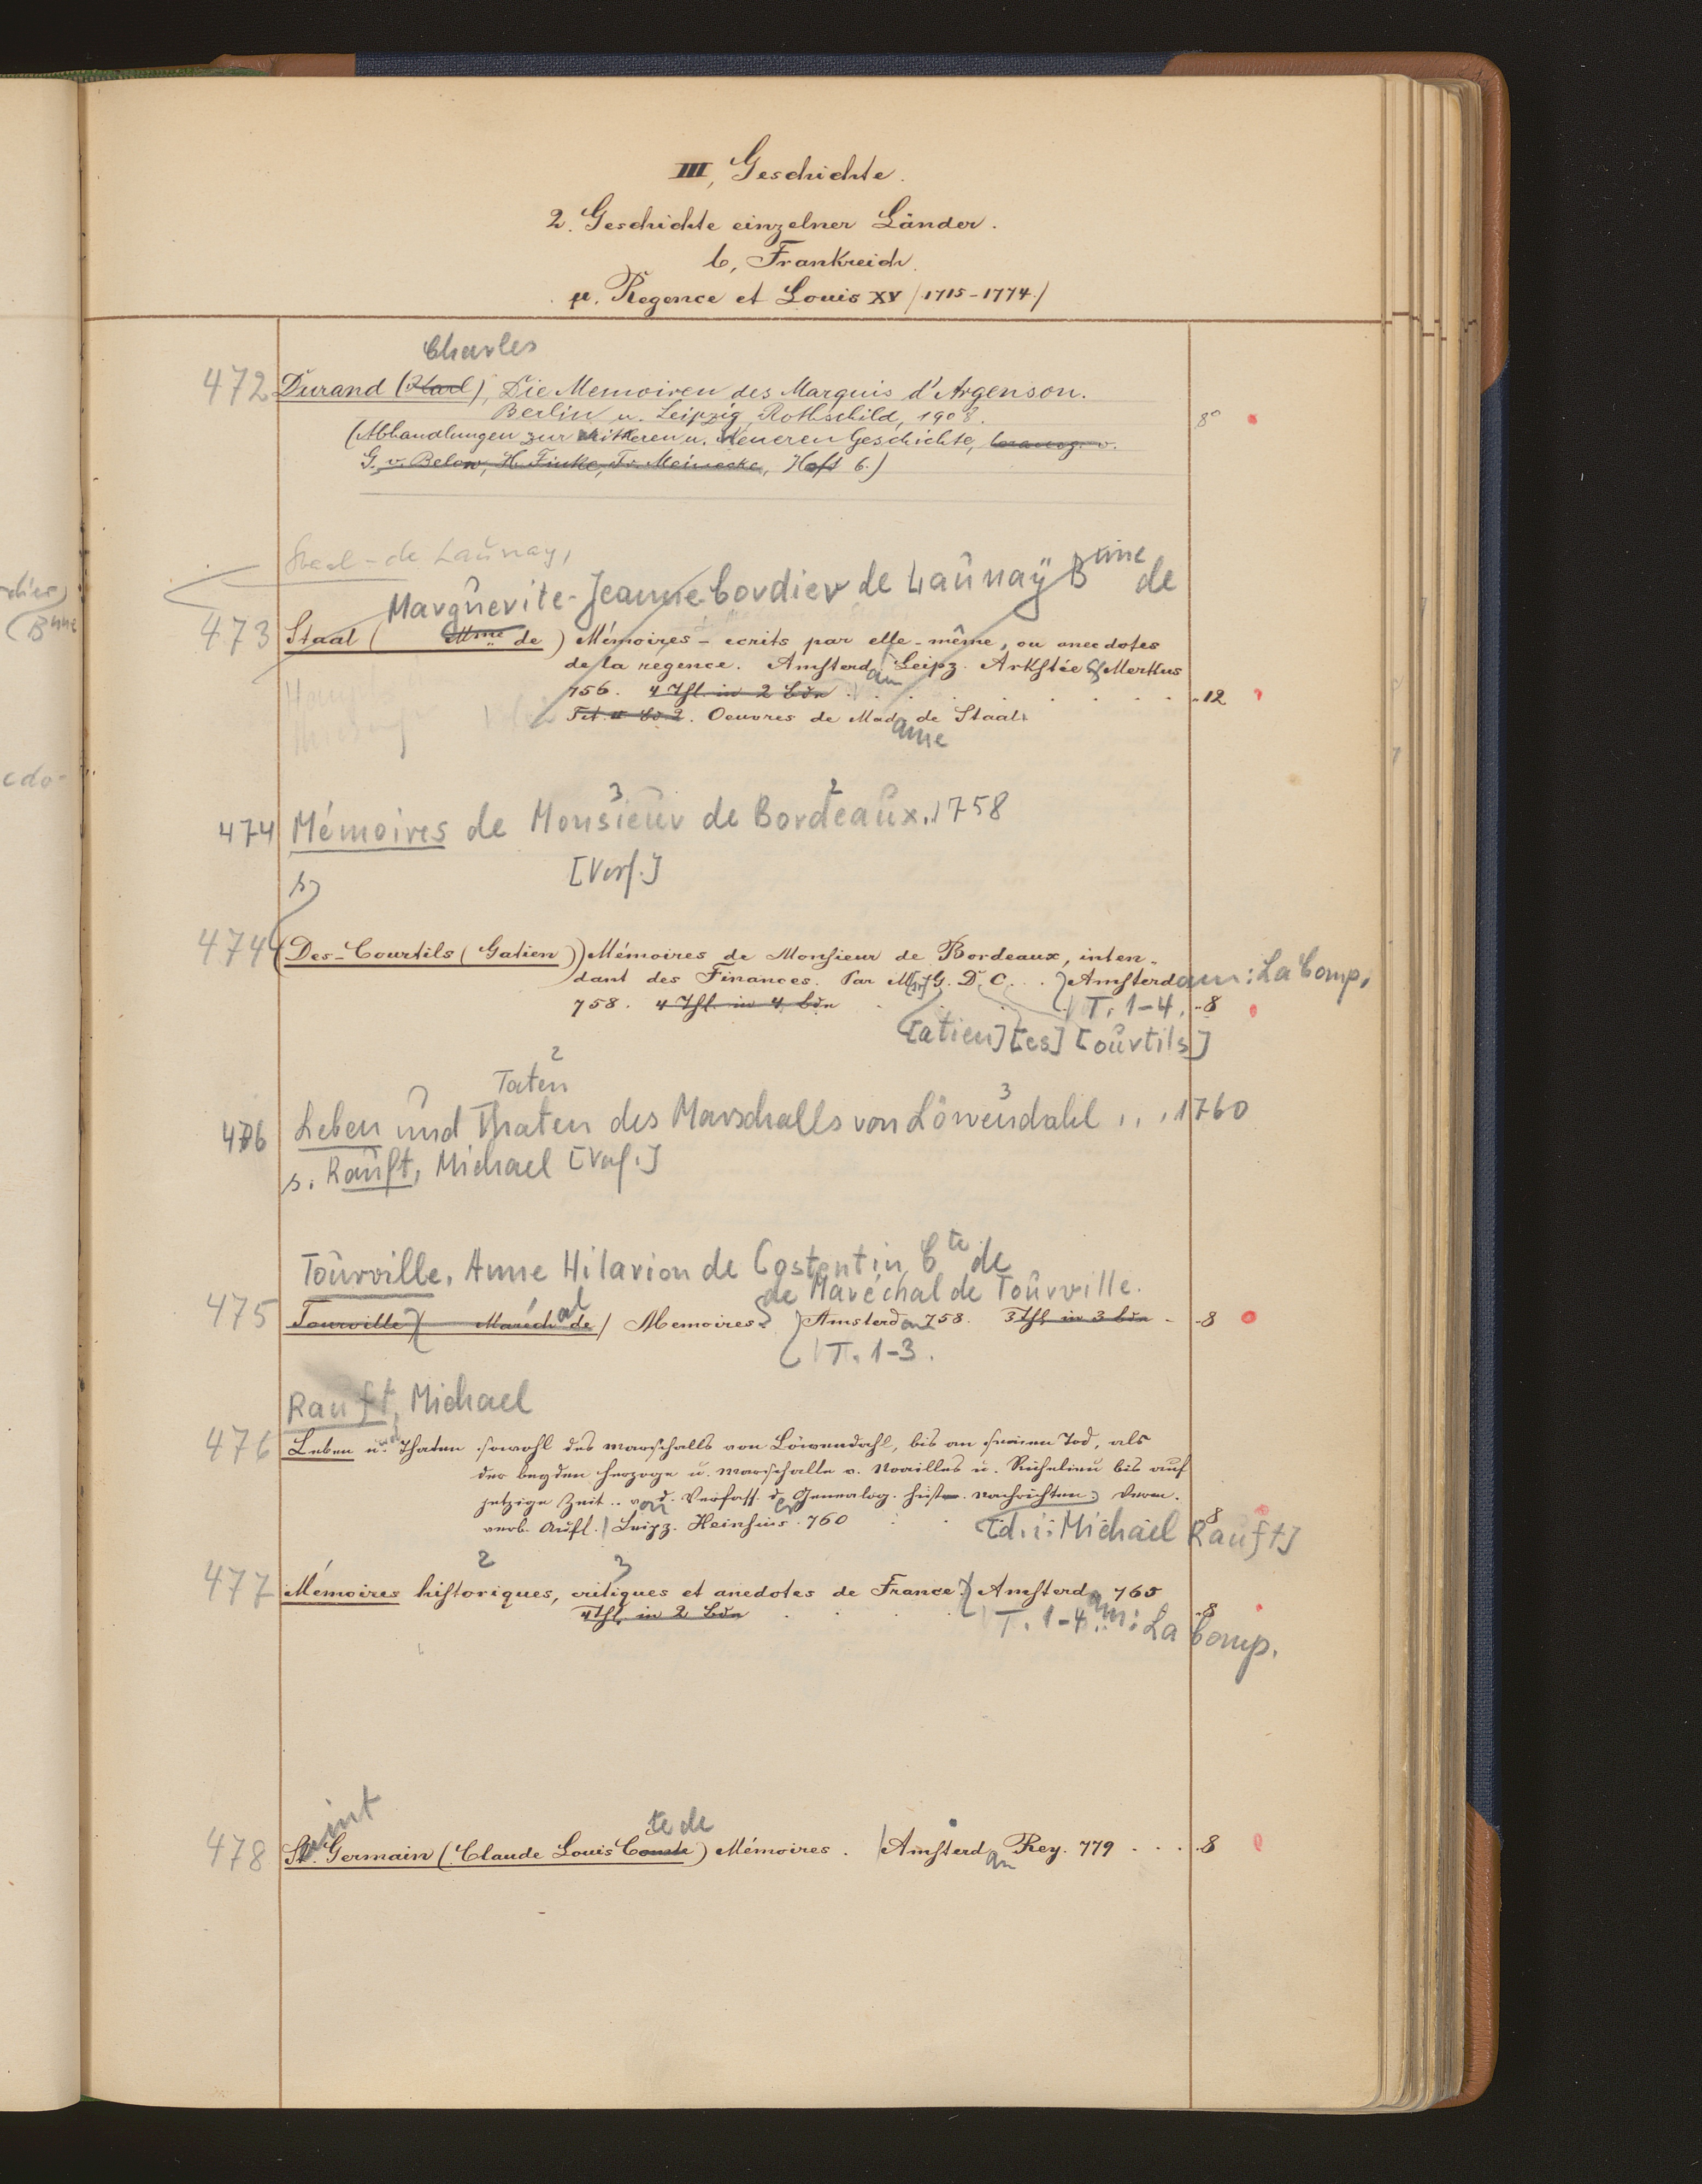 III, Geschichte.
2. Geschichte einzelner Länder.
b, Frankreich.
μ. Regence et Louis XV /1715-1774./
Charles
472 Durand (Karl), Die Memoiren des Marquis d'Argenson.
Berlin u. Leipzig, Rothschild, 1908. 8°
(Abhandlungen zur Mittleren u. Neueren Geschichte, herausg. v.
G. v. Below, H. Finke, Fr. Meinecke, Heft 6.)
Staal-de Launay,
Marguerite-Jeanne Cordier de Launay Bnne de
473 Staal (Mme de) Mémoires - ecrits par elle-même, ou anecdotes
de la regence. Amsterdam Leipz. Arkstée & Merkus
756. 4 Thl. in 2 Bdn . . . . . . . . -12
Tit. v. Bd 2. Oeuvres de Madame de Staal.
474 Mémoires de Monsieur de Bordeaux. 1758
3 2
s. [Verf.]
474 (Des-Courtils (Gatien)) Mémoires de Monsieur de Bordeaux, inten-
dant des Finances. Par M[r] G. D. C. . . Amsterdam: La Comp.
758. 4 Thl. in 4 Bdn T. 1-4. -8
[atien] [es] [ourtils]
2
Taten
3
476 Leben und Thaten des Marschalls von Löwendahl . . . 1760
s. Ranft, Michael [Verf.]
Tourville, Anne Hilarion de Costentin, Cte de
de Maréchal de Tourville.
475 Tourville (Maréchal de) Memoires. Amsterdam 758. 3 Thl. in 3 Bdn - -8
T. 1-3.
Ranft, Michael
476 Leben und Thaten sowohl des Marschalls von Löwendahl, bis an seinen Tod, als
der beyden Herzoge u. Marschalle v. Noailles u. Richelieu bis auf
jetzige Zeit .. von d. Verfass. der Genealog. hist. Nachrichten. Verm.
verb. Aufl. Leipz. Heinsius. 760 . . 8
[d. i. Michael Ranft]
2 3
477 Mémoires historiques, critiques et anedotes de France. Amsterdam: La Comp. 765
4 Thl. in 2 Bdn . . . T. 1-4. -8
478 Saint Germain (Claude Louis Comte de) Mémoires. Amsterdam Rey. 779 . . . 8
dier,
(Bnne
cdo-